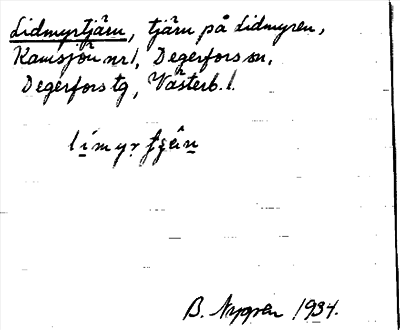 Lidmyrtjärn, tjärn på Lidmyren,
Ramsjön nr 1, Degerfors sn,
Degerfors tg, Västerb. l.
B. Nygren 1934.